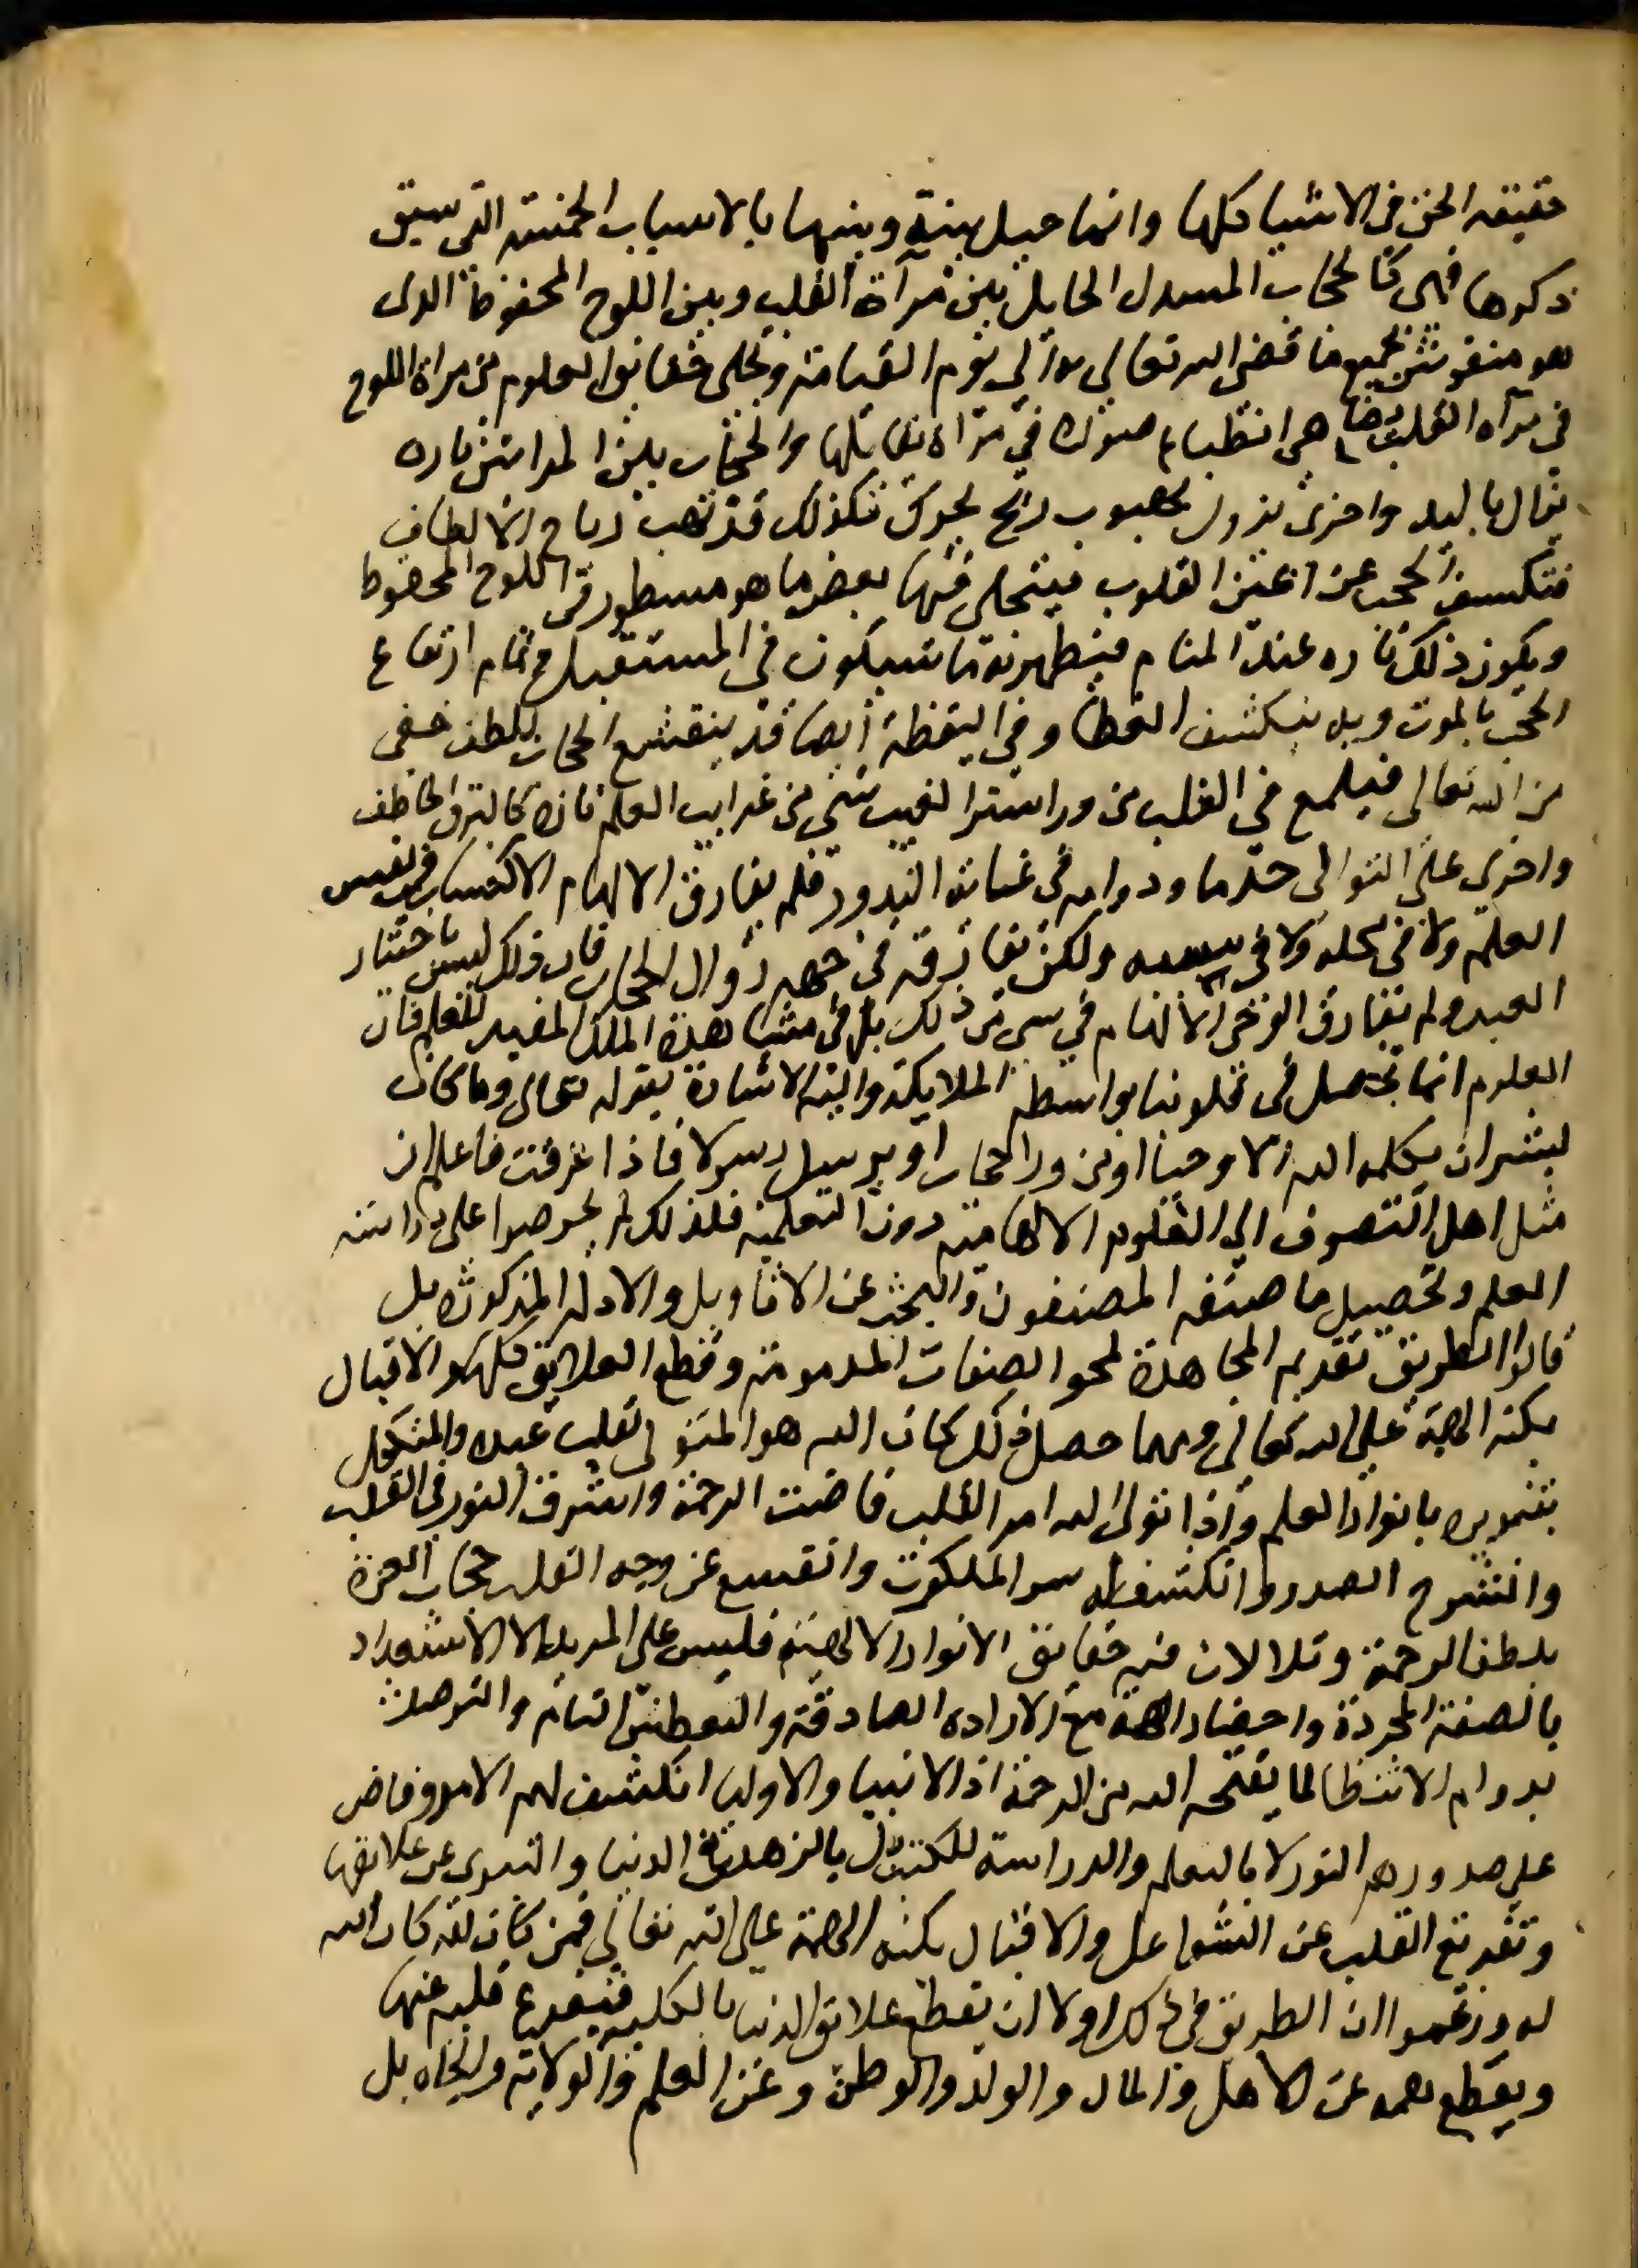 حقيقة الحق في الاشيا كلها وانما حيل بينه وبينها بالاسباب الخمسة التي سبق
ذكرها فهى كالحجاب المسدل الحايل بين مرآة القلب وبين اللوح المحفوظ الدى
هو منقوش بجميع ما قضى الله تعالى به الي يوم القيامة وتجلى حقايق العلوم من مراة اللوح
في مرآه القلب يضاهى انطباع صورة في مرآة تقابلها والحجاب بين المراتين تاره
يزال باليد واخرى يزول بهبوب ريح يحركه فكذلك قد تهب رياح الالطاف
فتكسف الحجب عن اعين القلوب فيتجلى فيها بعض ما هو مسطور في اللوح المحفوظ
ويكون ذلك تاره عند المنام فيظهر به ما سيكون في المستقبل وتمام ارتفاع
الحجب بالموت وبه ينكشف الغطا وفي اليقظة أيضا قد ينقشع الحجاب بلطف خفي
من الله تعالى فيلمع في القلب من ورا ستر الغيب شي من غرايب العلم تارة كالبرق الخاطف
واخري على التوالى حد ما ودوامه في غاية الندور فلم يفارق الالهام الاكتساب في نفس
العلم ولا في محله ولا في سببه ولكن يفارقه في جهه زوال الحجاب فان ذلك ليس باختيار
العبد ولم يفارق الوحى الالهام في سي من ذلك بل في مشاهدة الملك المفيد للعلم فان
العلوم انما تحصل في قلوبنا بواسطه الملايكة واليه الاشارة بقوله تعالى وما كان
لبشر ان يكلمه الله الا وحيا او من ورا حجاب او يرسل رسولا فاذا عرفت فاعلم ان
مثل اهل التصوف الي العلوم الالهامية دون التعلمية فلذلك لم يحرصوا على دراسة
العلم وتحصيل ما صنفه المصنفون والبحث عن الاقاويل والادله المذكورة بل
قالوا الطريق تقديم المجاهدة لمحو الصفات المدمومة وقطع العلايق كلها والاقبال
بكنه الهمة على الله تعالي ومهما حصل ذلك كان الله هو المتولى لقلب عبده والمتكفل
بتنويره بانوار العلم وأذا تولى الله امر القلب فاضت الرحمة واشرق النور في القلب
وانشرح الصدر وانكشف له سر الملكوت وانقسع عن وجه القلب حجاب العزة
بلطف الرحمة وتلالات فيه حقايق الانوار الالهية فليس على المريد الا الاستعداد
بالصفة المجردة واحضار الهمة مع الاراده الصادقة والتعطش التام والترصد
بدوام الانتظار لما يفتحه الله من الرحمة اذ الانبيا والاوليا انكشف لهم الامر وفاض
على صدورهم النور لا بالتعلم والدراسة للكتب بل بالزهد في الدنيا والتبرى عن علايقها
وتفريغ القلب عن الشواغل والاقبال بكنه الهمة على الله تعالي فمن كان لله كان الله
له وزعموا ان الطريق في ذلك اولا ان يقطع علايق الدنيا بالكلية فيفرغ قلبه عنها
ويقطع همه عن الاهل والمال والولد والوطن وعن العلم والولاية والجاه بل